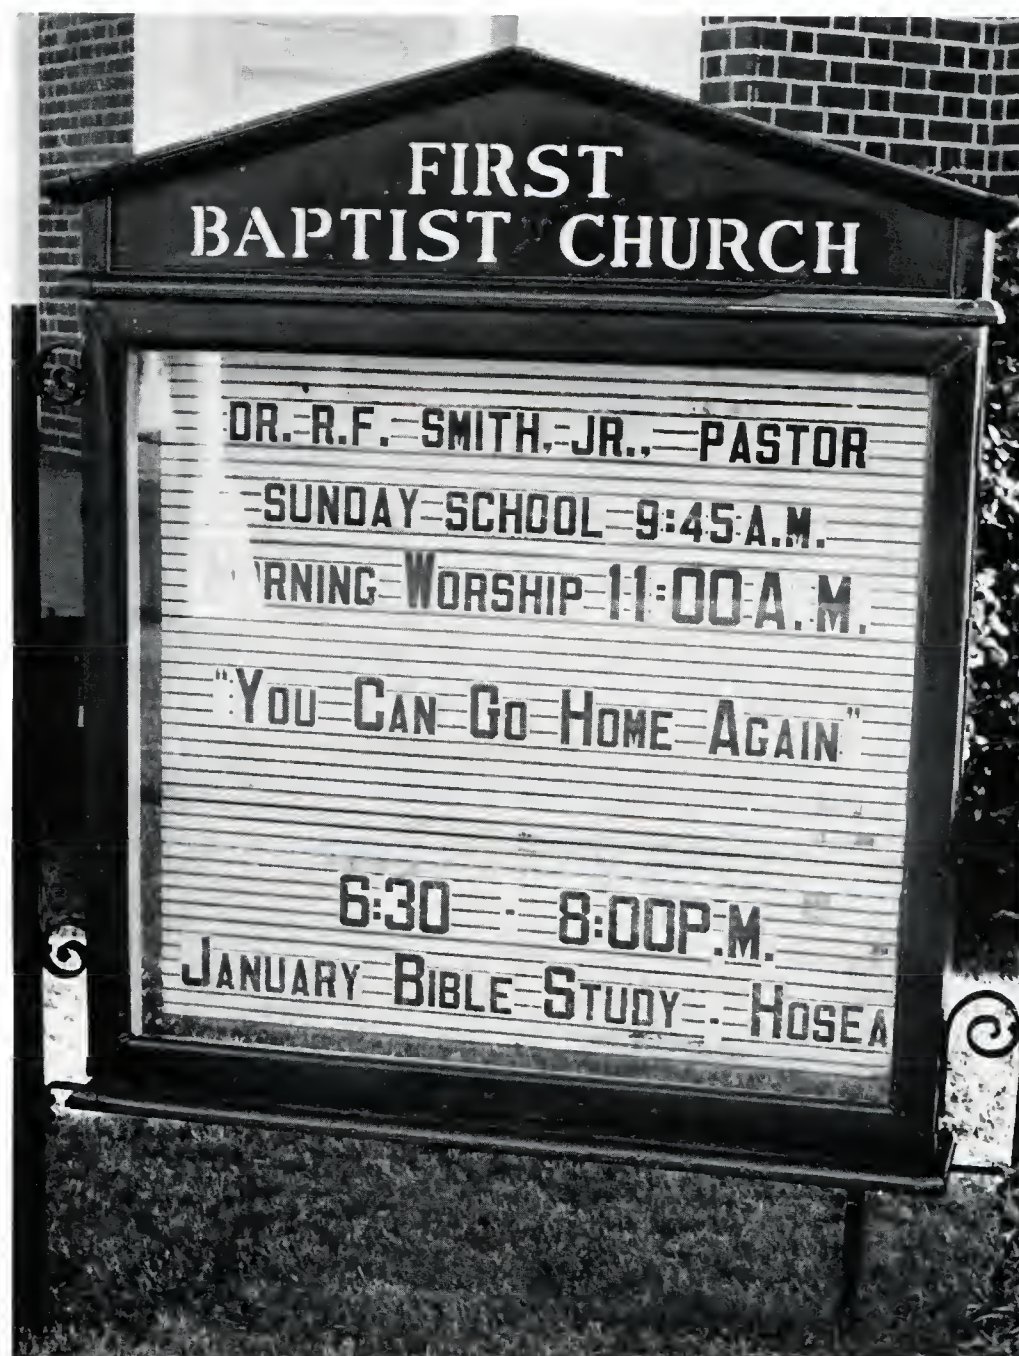 FIRST
BAPTIST CHURCH
DR. R.F. SMITH, JR., PASTOR
SUNDAY SCHOOL 9:45 A.M.
MORNING WORSHIP 11:00 A.M.
"YOU CAN GO HOME AGAIN"
6:30 - 8:00 P.M.
JANUARY BIBLE STUDY - HOSEA